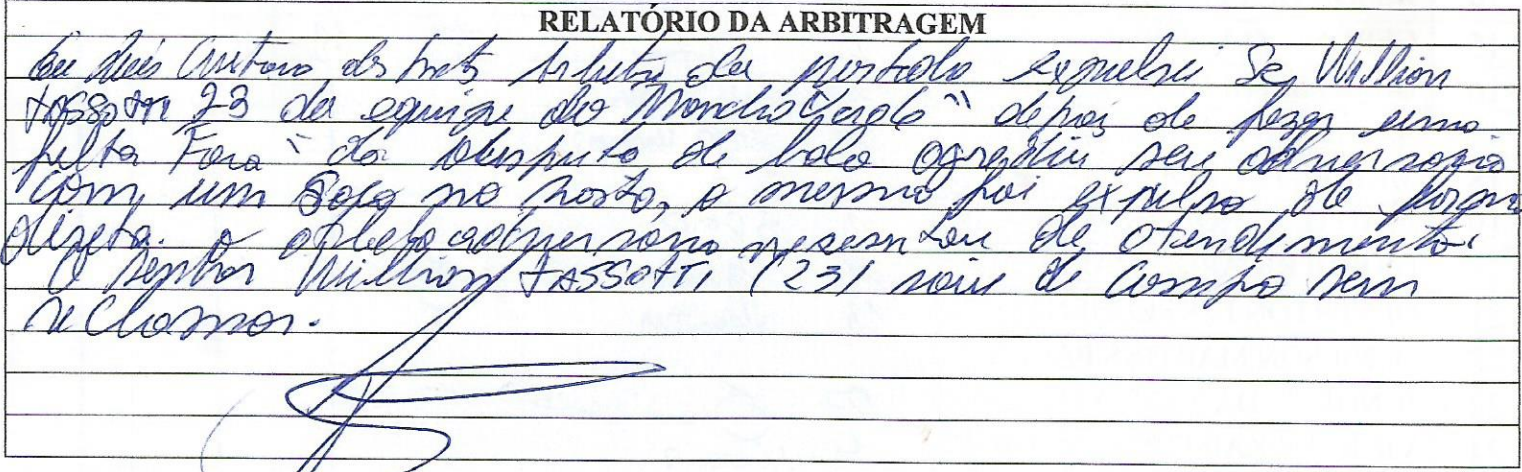 RELATÓRIO DA ARBITRAGEM
Eu Luis Gustavo dos Arbitro da partida expulsei Sr, Willian
TASSOTTI 23 da equipe do depois de fazer uma
falta Fora " da disputa de bola agrediu seu adversario
com, um soco no rosto, o mesmo foi expulso de forma
direta. o atleta adversario de atendimento.
O senhor Willian TASSOTTI (23) saiu de campo sem
reclamar.